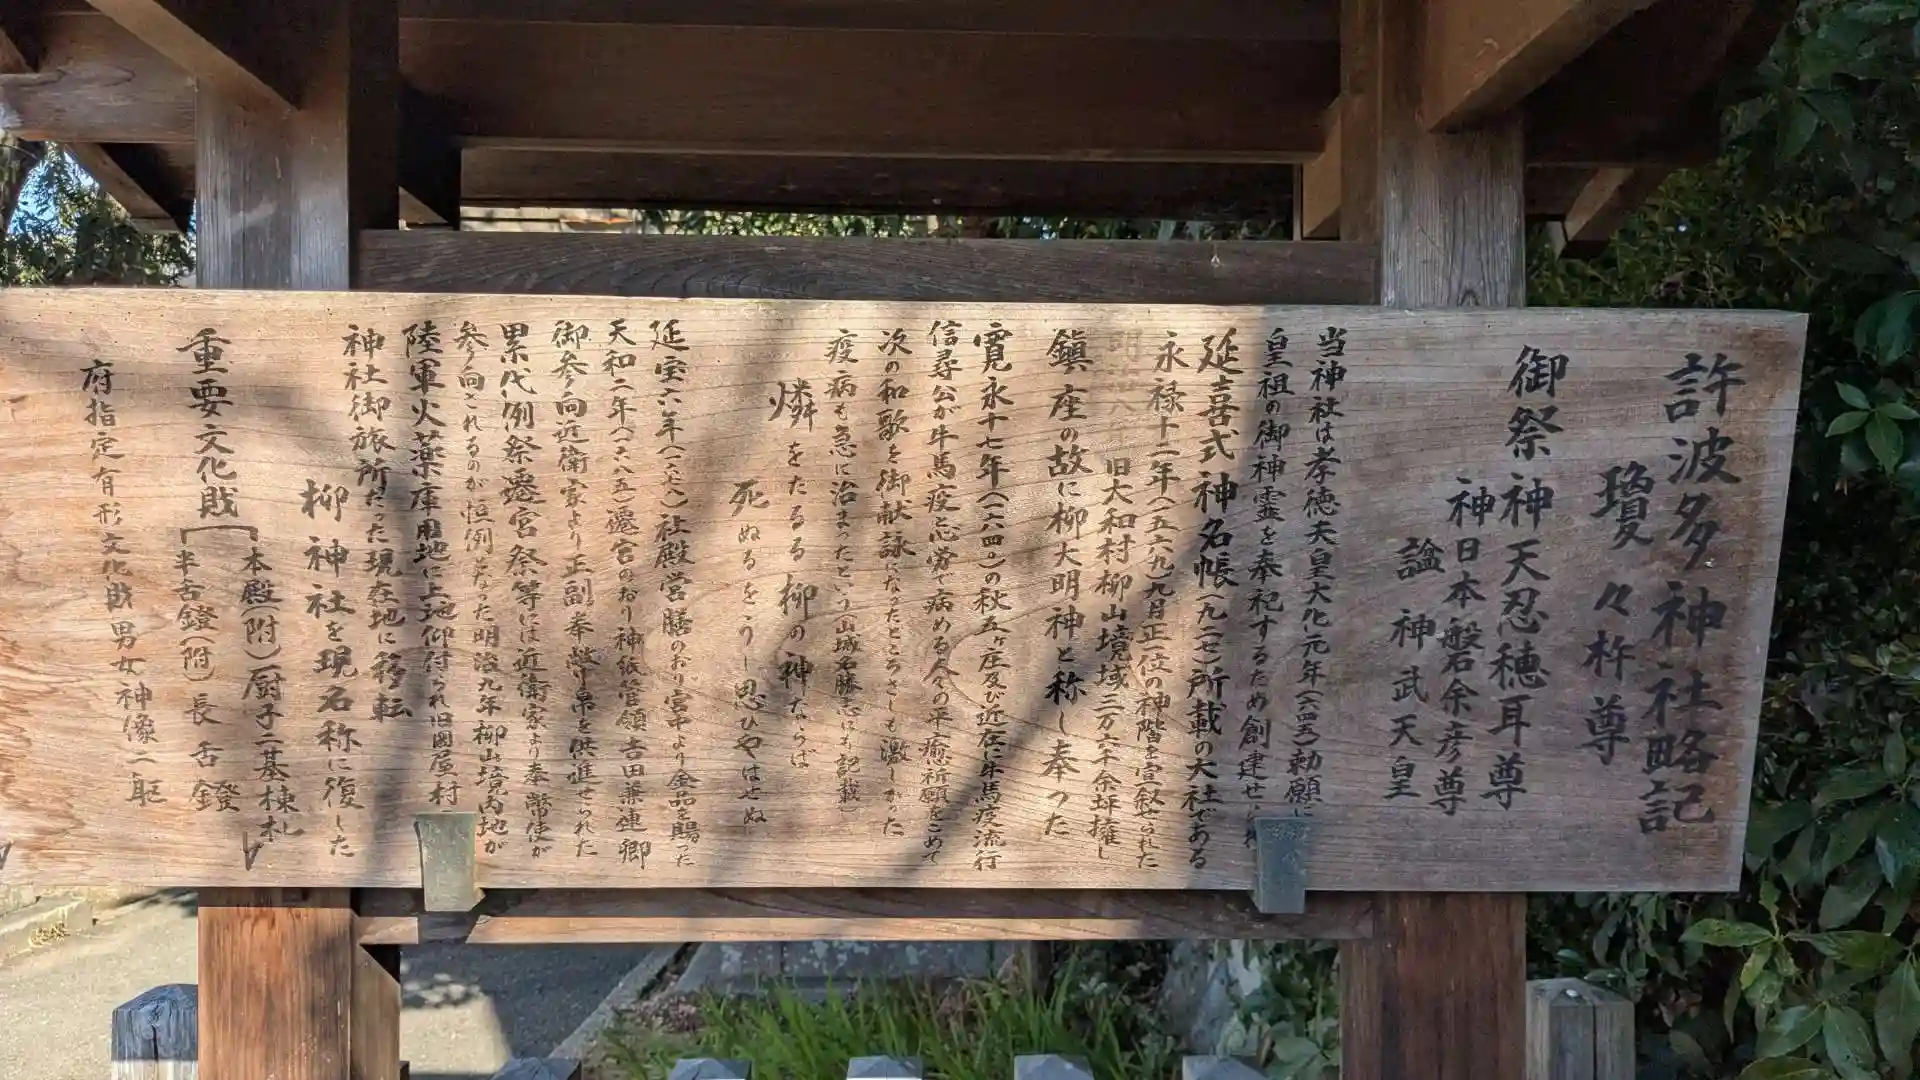 許波多神社略記
瓊々杵尊
御祭神天忍穂耳尊
神日本磐余彦尊
諡神武天皇
当神社は孝徳天皇大化元年(六四五)勅願に
皇祖の御神霊を奉祀するため創建せ
延喜式神名帳(九二七)所載の大社である
永禄十二年(一五六九)九月正一位の神階を宣叙せられた
旧大和村柳山境域三万六千余坪擁し
鎮座の故に柳大明神と称し奉った
寛永十七年(一六四〇)の秋五ヶ庄及び近在に牛馬疫流行
信尋公が牛馬疫忘労で病める人々の平癒祈願をこめて
次の和歌を御献詠になったところさしも激しかった
疫病も急に治まったという(山城名勝志にも記載)
憐をたるる柳の神ならば
死ぬるをうし思ひやはせぬ
延宝六年(一六七八)社殿営膳のおり宮中より金品を賜った
天和二年(一六八五)遷宮のおり神祇管領吉田兼連卿
御参向近衛家より正副奉幣帛を供進せられた
累代例祭遷宮祭等には近衛家より奉幣使が
参向されるのが恒例となった明治九年柳山境内地が
陸軍火薬庫用地に上地仰付られ旧岡屋村
神社御旅所だった現在地に移転
柳神社を現名称に復した
重要文化財
本殿(附)厨子二基棟札
半舌鐙(附)長舌鐙
府指定有形文化財男女神像二躯